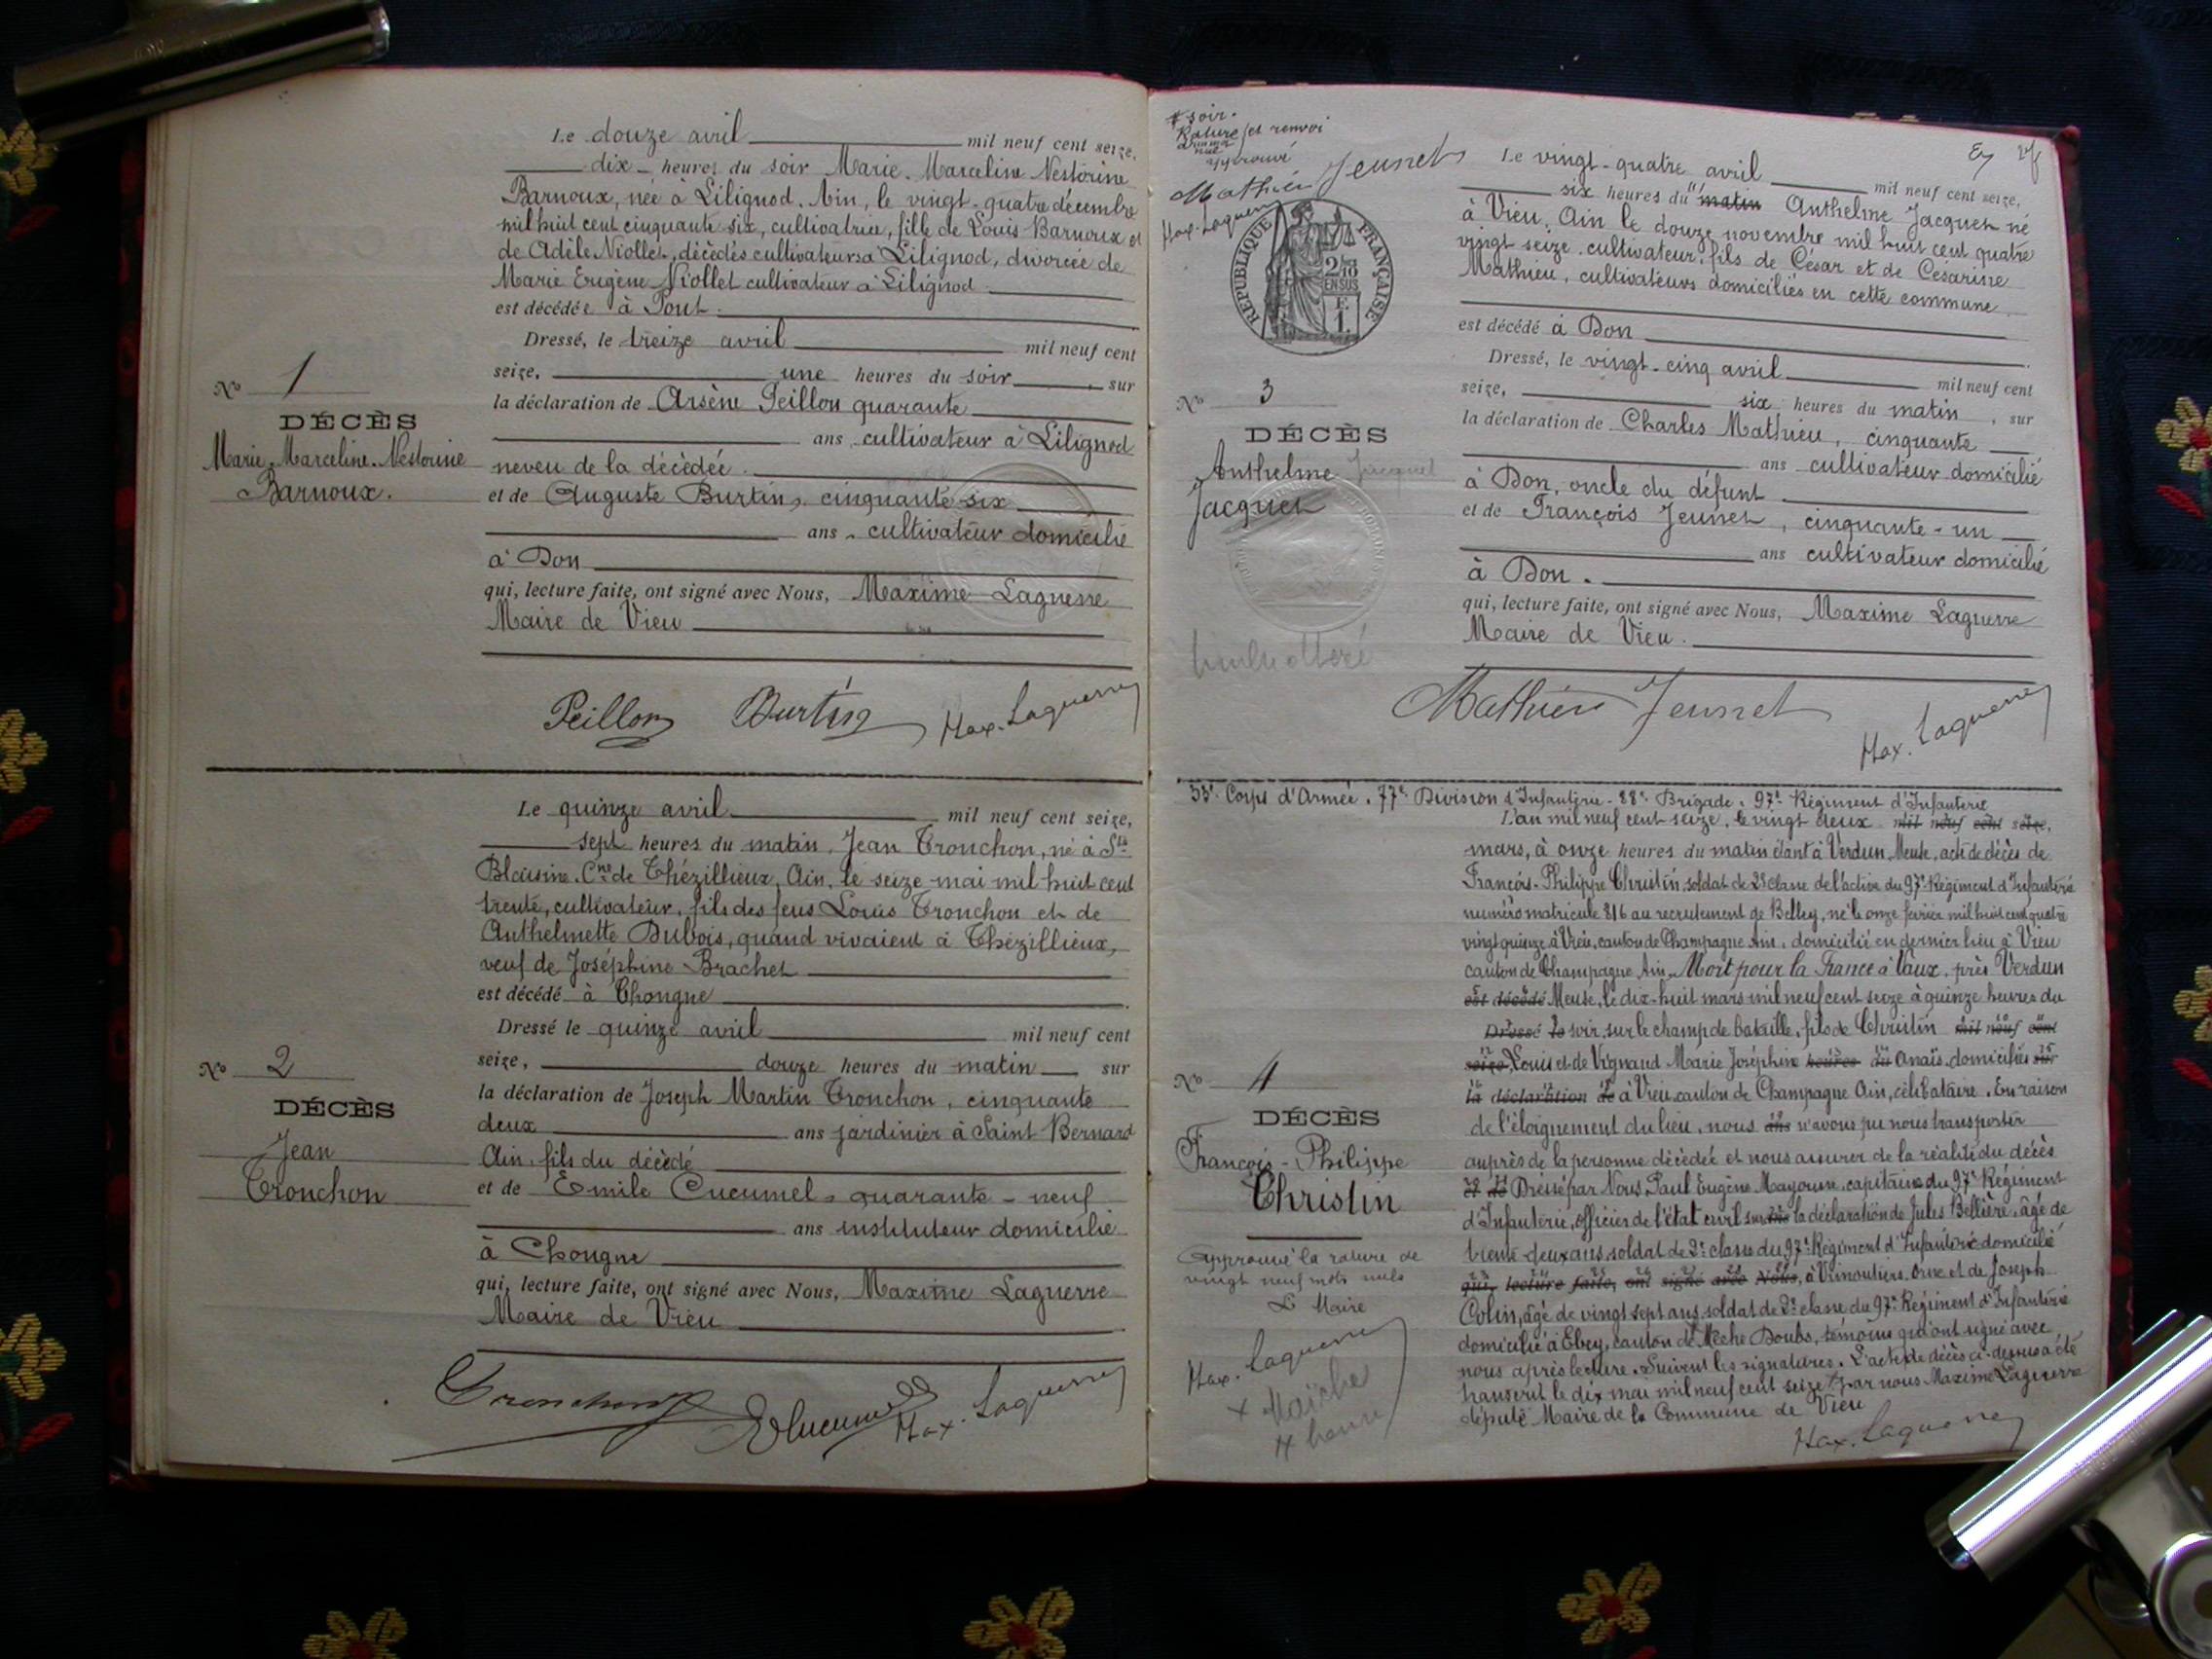 Le douze avril mil neuf cent seize,
dix heures du soir Marie. Marceline Nestorine
Barnoux, née à Lilignod. Ain, le vingt-quatre décembre
mil huit cent cinquante six, cultivatrice, fille de Louis Barnoux et
de Adèle Niollet, décédés cultivateurs à Lilignod, divorcée de
Marie Eugène Niollet cultivateur à Lilignod
est décédée à Pont.
Dressé, le treize avril mil neuf cent
seize, une heures du soir, sur
la déclaration de Arsène Peillon quarante
ans cultivateur à Lilignod
neveu de la décédée.
et de Auguste Burtin, cinquante six
ans, cultivateur domicilié
à Don
qui, lecture faite, ont signé avec Nous, Maxime Laguerre
Maire de Vieu
No 1
DÉCÈS
Marie. Marceline. Nestorine
Barnoux.
Peillon Burtin Max. Laguerre
Le quinze avril mil neuf cent seize,
sept heures du matin. Jean Tronchon, né à Ste
Blaisine. Cne de Thézillieux, Ain, le seize mai mil huit cent
trente, cultivateur, fils des feus Louis Tronchon et de
Anthelmette Dubois, quand vivaient à Thézillieux,
veuf de Joséphine Brachet
est décédé à Chongne
Dressé le quinze avril mil neuf cent
seize, douze heures du matin sur
la déclaration de Joseph Martin Tronchon, cinquante
deux ans jardinier à Saint Bernard
Ain, fils du décédé
et de Emile Cucumel, quarante-neuf
ans instituteur domicilié
à Chongne
qui, lecture faite, ont signé avec Nous, Maxime Laguerre
Maire de Vieu
No 2
DÉCÈS
Jean
Tronchon
Tronchon ECucumel Max. Laguerre
soir.
Rature et renvoi
approuvé
Mathieu Jeunet
Max. Laguerre
RÉPUBLIQUE FRANÇAISE
2/10 EN SUS
F. 1.
Le vingt-quatre avril mil neuf cent seize,
six heures du matin Anthelme Jacquet né
à Vieu, Ain le douze novembre mil huit cent quatre
vingt seize, cultivateur, fils de César et de Césarine
Mathieu, cultivateurs domiciliés en cette commune
est décédé à Don
Dressé, le vingt-cinq avril mil neuf cent
seize, six heures du matin, sur
la déclaration de Charles Mathieu, cinquante
ans cultivateur domicilié
à Don, oncle du défunt
et de François Jeunet, cinquante-un
ans cultivateur domicilié
à Don.
qui, lecture faite, ont signé avec Nous, Maxime Laguerre
Maire de Vieu.
No 3
DÉCÈS
Anthelme Jacquet
Jacquet
Mathieu Jeunet Max. Laguerre
33e Corps d'Armée. 77e Division d'Infanterie. 88e Brigade. 97e Régiment d'Infanterie
L'an mil neuf cent seize, le vingt deux mil neuf cent seize,
mars, à onze heures du matin étant à Verdun, Meuse, acte de décès de
François-Philippe Christin soldat de 2e classe de l'active du 97e Régiment d'Infanterie
numéro matricule 816 au recrutement de Belley, né le onze février mil huit cent quatre
vingt quinze à Vieu, canton de Champagne Ain, domicilié en dernier lieu à Vieu
canton de Champagne, Ain. Mort pour la France à Vaux, près Verdun
est décédé Meuse, le dix-huit mars mil neuf cent seize à quinze heures du
Dressé le soir, sur le champ de bataille, fils de Christin mil neuf cent
seize Louis et de Vignand Marie Joséphine heures du Anaïs, domiciliés sur
la déclaration de à Vieu, canton de Champagne Ain, célibataire. En raison
de l'éloignement du lieu, nous ans n'avons pu nous transporter
auprès de la personne décédée et nous assurer de la réalité du décès
et de Dressé par Nous, Paul Eugène Mayoune, capitaine du 97e Régiment
d'Infanterie, Officier de l'état civil sur ans la déclaration de Jules Bellière, âgé de
trente deux ans, soldat de 2e classe du 97e Régiment d'Infanterie domicilié
qui, lecture faite, ont signé avec Nous, à Vimoutiers, Orne et de Joseph
Colin, âgé de vingt sept ans, soldat de 2e classe du 97e Régiment d'Infanterie
domicilié à Ebey, canton de Mèche Doubs, témoins qui ont signé avec
nous après lecture. Suivent les signatures. L'acte de décès ci-dessus a été
transcrit le dix mai mil neuf cent seize par nous Maxime Laguerre
député Maire de la Commune de Vieu
Max. Laguerre
No 4
DÉCÈS
François-Philippe
Christin
Approuvé la rature de
vingt neuf mots nuls
Le Maire
Max. Laguerre
x Maîche